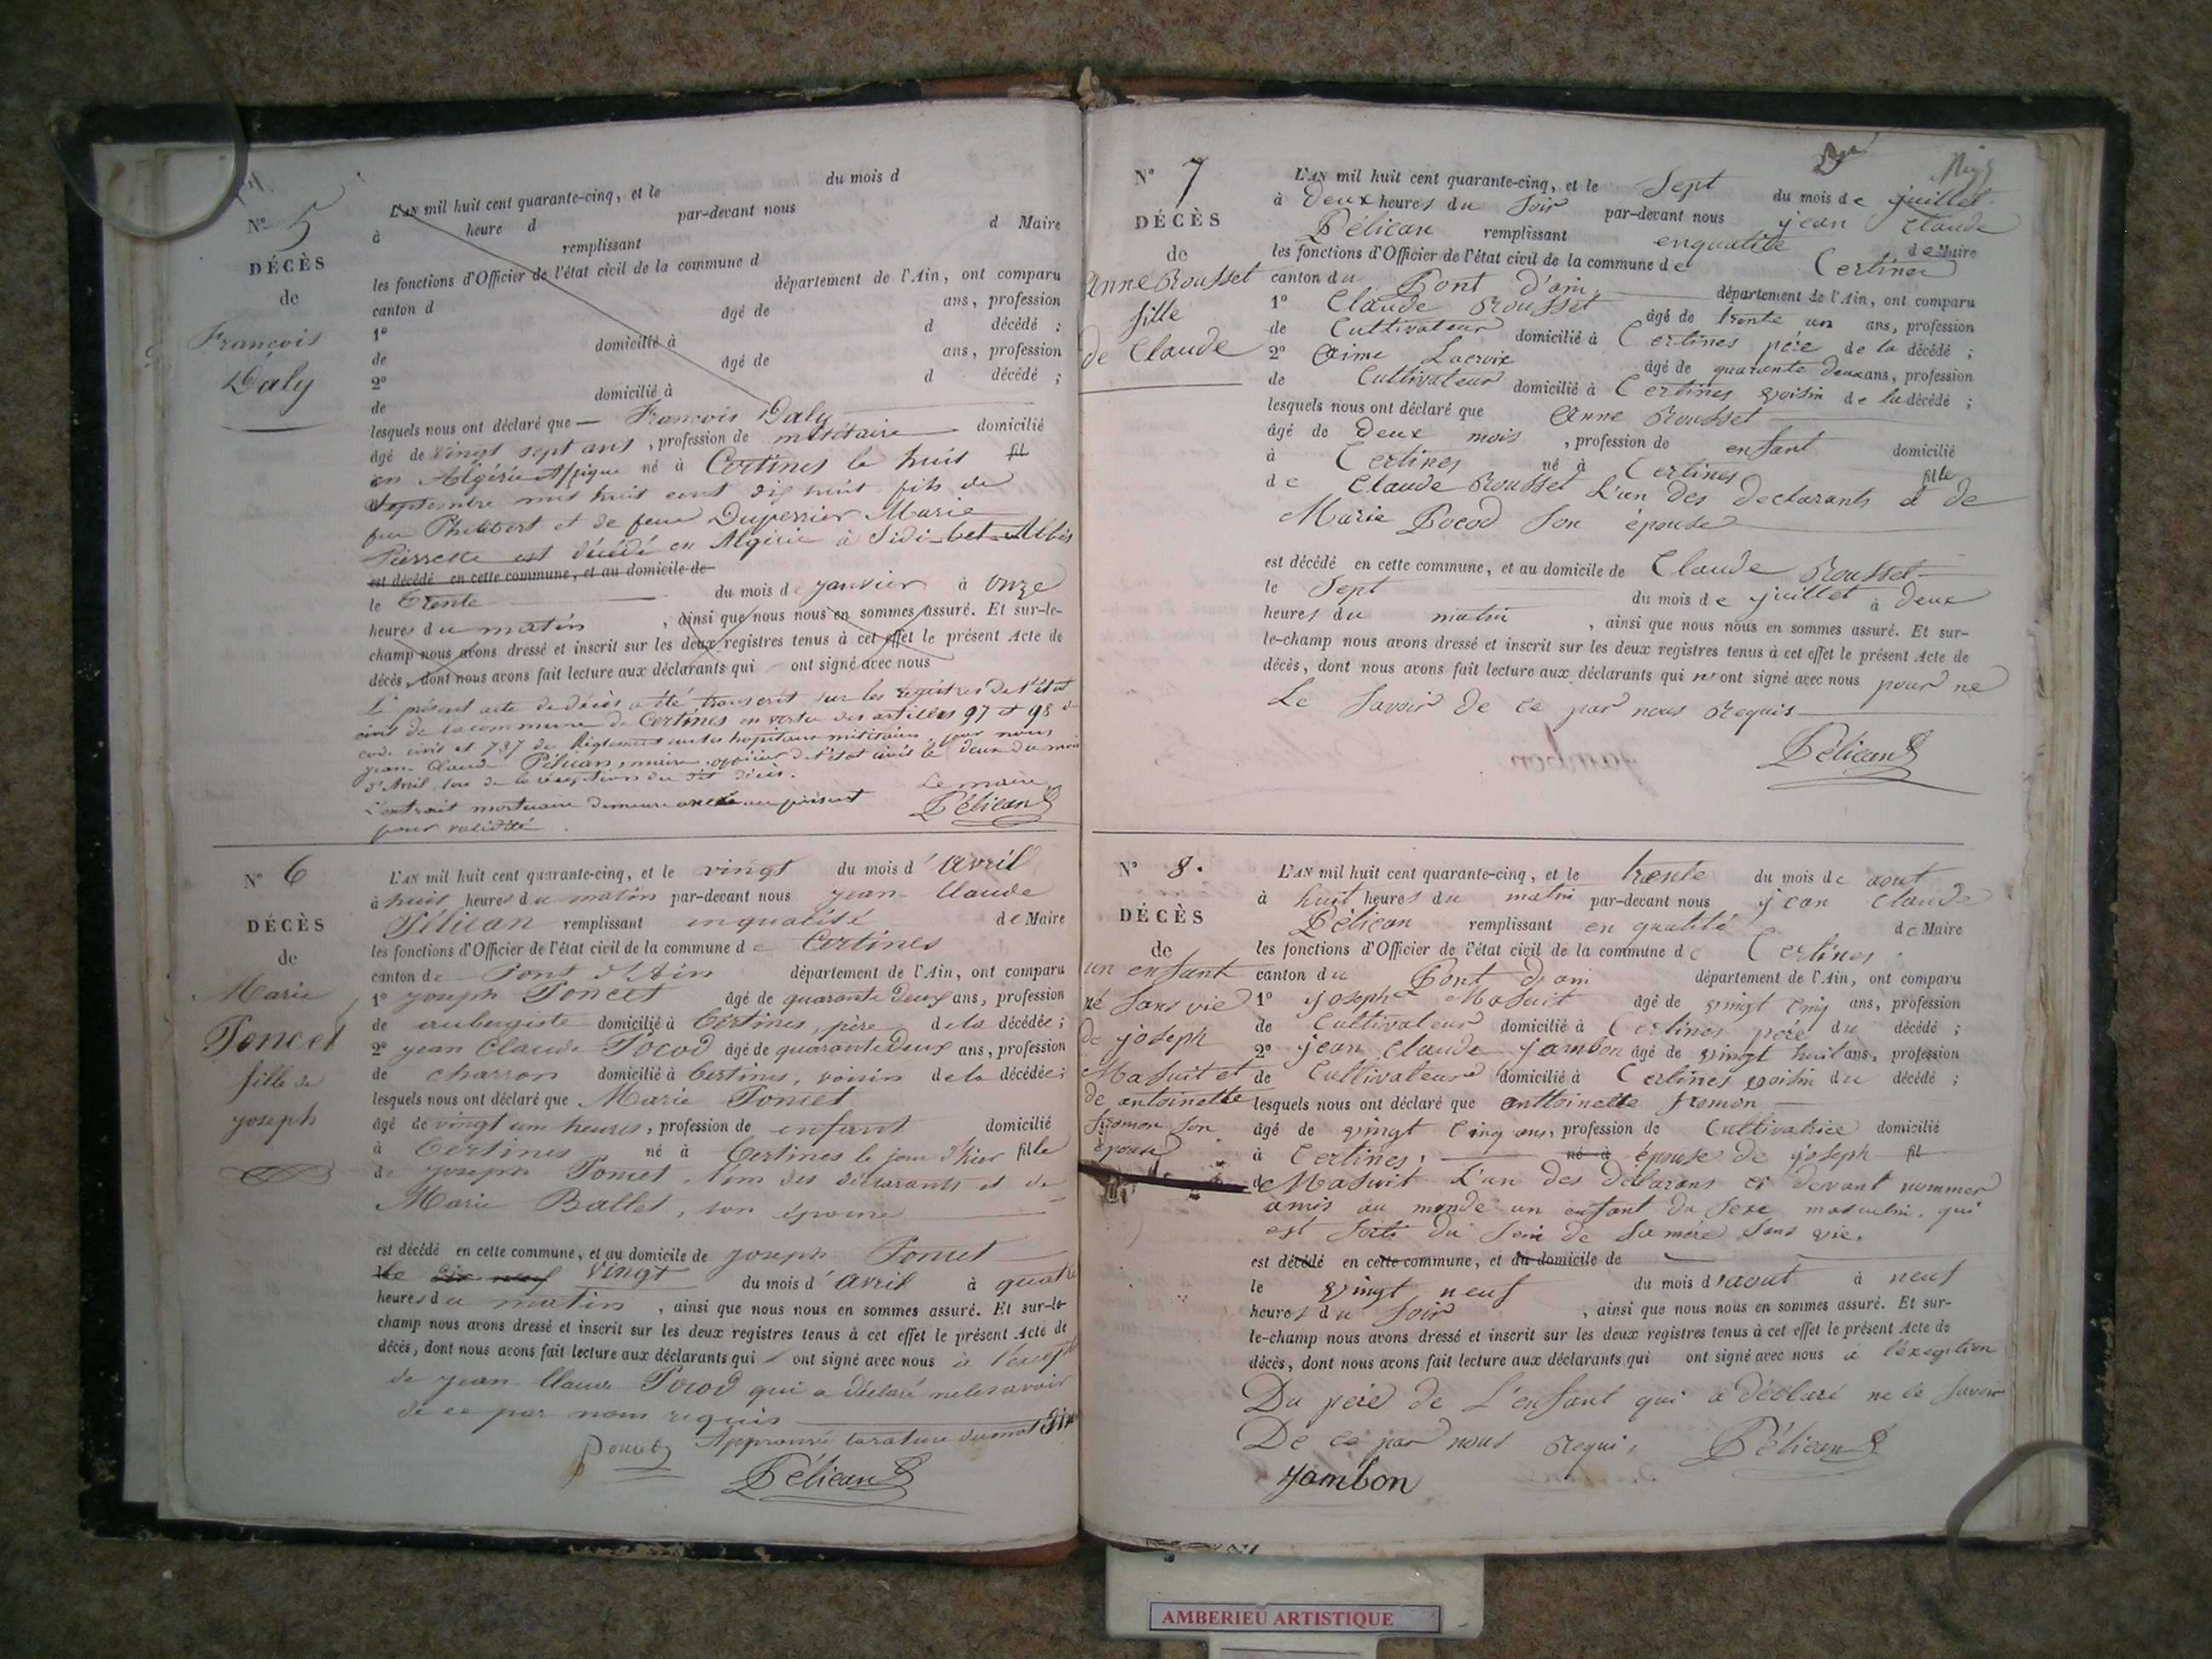 N° 5
DÉCÈS
de
François
Daly
L'AN mil huit cent quarante-cinq, et le du mois d
à heure d par-devant nous
remplissant d Maire
les fonctions d'Officier de l'état civil de la commune d
canton d département de l'Ain, ont comparu
1° âgé de ans, profession
de domicilié à d décédé ;
2° âgé de ans, profession
de domicilié à d décédé ;
lesquels nous ont déclaré que — François Daly
âgé de vingt sept ans, profession de militaire domicilié
en Algérie Afrique né à Certines le huit fil
septembre mil huit cent dix huit fils de
feu Philibert et de feue Duperrier Marie
Pierrette est décédé en Algérie à Sidi-bel-Abbès
est décédé en cette commune, et au domicile de
le trente du mois de janvier à onze
heures du matin , ainsi que nous nous en sommes assuré. Et sur-le-
champ nous avons dressé et inscrit sur les deux registres tenus à cet effet le présent Acte de
décès, dont nous avons fait lecture aux déclarants qui ont signé avec nous
Le présent acte de décès a été transcrit sur les registres de l'état
civil de la commune de Certines en vertu des articles 97 et 98 du
code civil et 737 du Règlement sur les hopitaux militaires, par nous
jean Claude Pélican, maire, officier de l'état civil le deux du mois
d'Avril, lors de la réception du dit décès.
L'extrait mortuaire demeure annexé au présent Le maire
pour validité. Pélican
N° 6
DÉCÈS
de
Marie
Poncet
fille de
joseph
L'AN mil huit cent quarante-cinq, et le vingt du mois d'avril
à huit heures du matin par-devant nous jean-Claude
Pélican remplissant en qualité de Maire
les fonctions d'Officier de l'état civil de la commune de Certines
canton de Pont d'Ain département de l'Ain, ont comparu
1° joseph Poncet âgé de quarante deux ans, profession
de aubergiste domicilié à Certines, père de la décédée ;
2° jean Claude Pocod âgé de quarante deux ans, profession
de charron domicilié à Certines, voisin de la décédée ;
lesquels nous ont déclaré que Marie Poncet
âgé de vingt une heures, profession de enfant domicilié
à Certines né à Certines le jour d'hier fille
de joseph Poncet, l'un des déclarants et de
Marie Ballet, son épouse
est décédé en cette commune, et au domicile de joseph Poncet
le dix neuf vingt du mois d'avril à quatre
heures du matin , ainsi que nous nous en sommes assuré. Et sur-le-
champ nous avons dressé et inscrit sur les deux registres tenus à cet effet le présent Acte de
décès, dont nous avons fait lecture aux déclarants qui ont signé avec nous à l'except
de jean-Claude Pocod qui a déclaré ne le savoir
de ce par nous requis
Approuvé la rature du mot dix
Poncet
Pélican
N° 7
DÉCÈS
de
Anne Rousset
fille
de Claude
L'AN mil huit cent quarante-cinq, et le sept du mois de juillet
à deux heures du soir par-devant nous jean Claude
Pélican remplissant en qualité de Maire
les fonctions d'Officier de l'état civil de la commune de Certines
canton du Pont d'ain département de l'Ain, ont comparu
1° Claude Rousset âgé de trente un ans, profession
de Cultivateur domicilié à Certines père de la décédé ;
2° Aime Lacroix âgé de quarante deux ans, profession
de Cultivateur domicilié à Certines voisin de la décédé ;
lesquels nous ont déclaré que Anne Rousset
âgé de deux mois , profession de enfant domicilié
à Certines né à Certines fille
de Claude Rousset L'un des declarants et de
Marie Pocod Son épouse
est décédé en cette commune, et au domicile de Claude Rousset
le Sept du mois de juillet à deux
heures du matin , ainsi que nous nous en sommes assuré. Et sur-
le-champ nous avons dressé et inscrit sur les deux registres tenus à cet effet le présent Acte de
décès, dont nous avons fait lecture aux déclarants qui n'ont signé avec nous pour ne
Le Savoir de ce par nous Requis
Pélican
N° 8.
DÉCÈS
de
un enfant
né Sans vie
de joseph
Masuit et
de antoinette
fromon son
épouse
L'AN mil huit cent quarante-cinq, et le trente du mois de aout
à huit heures du matin par-devant nous jean Claude
Pélican remplissant en qualité de Maire
les fonctions d'Officier de l'état civil de la commune de Certines
canton du Pont d'ain département de l'Ain, ont comparu
1° joseph Masuit âgé de vingt cinq ans, profession
de Cultivateur domicilié à Certines père du décédé ;
2° jean Claude jambon âgé de vingt huit ans, profession
de Cultivateur domicilié à Certines voisin du décédé ;
lesquels nous ont déclaré que anttoinette fromon
âgé de vingt cinq ans, profession de Cultivatrice domicilié
à Certines. né à épouse de joseph fil
de Masuit L'un des déclarans ci devant nommer
amis au monde un enfant du sexe masculin. qui
est sorti du sein de Sa mère Sans vie.
est décédé en cette commune, et au domicile de
le vingt neuf du mois d'aout à neuf
heures du Soir , ainsi que nous nous en sommes assuré. Et sur-
le-champ nous avons dressé et inscrit sur les deux registres tenus à cet effet le présent Acte de
décès, dont nous avons fait lecture aux déclarants qui ont signé avec nous à l'exeption
Du père de L'enfant qui a déclaré ne le Savoir
De ce par nous Requi, Pélican
jambon
AMBERIEU ARTISTIQUE